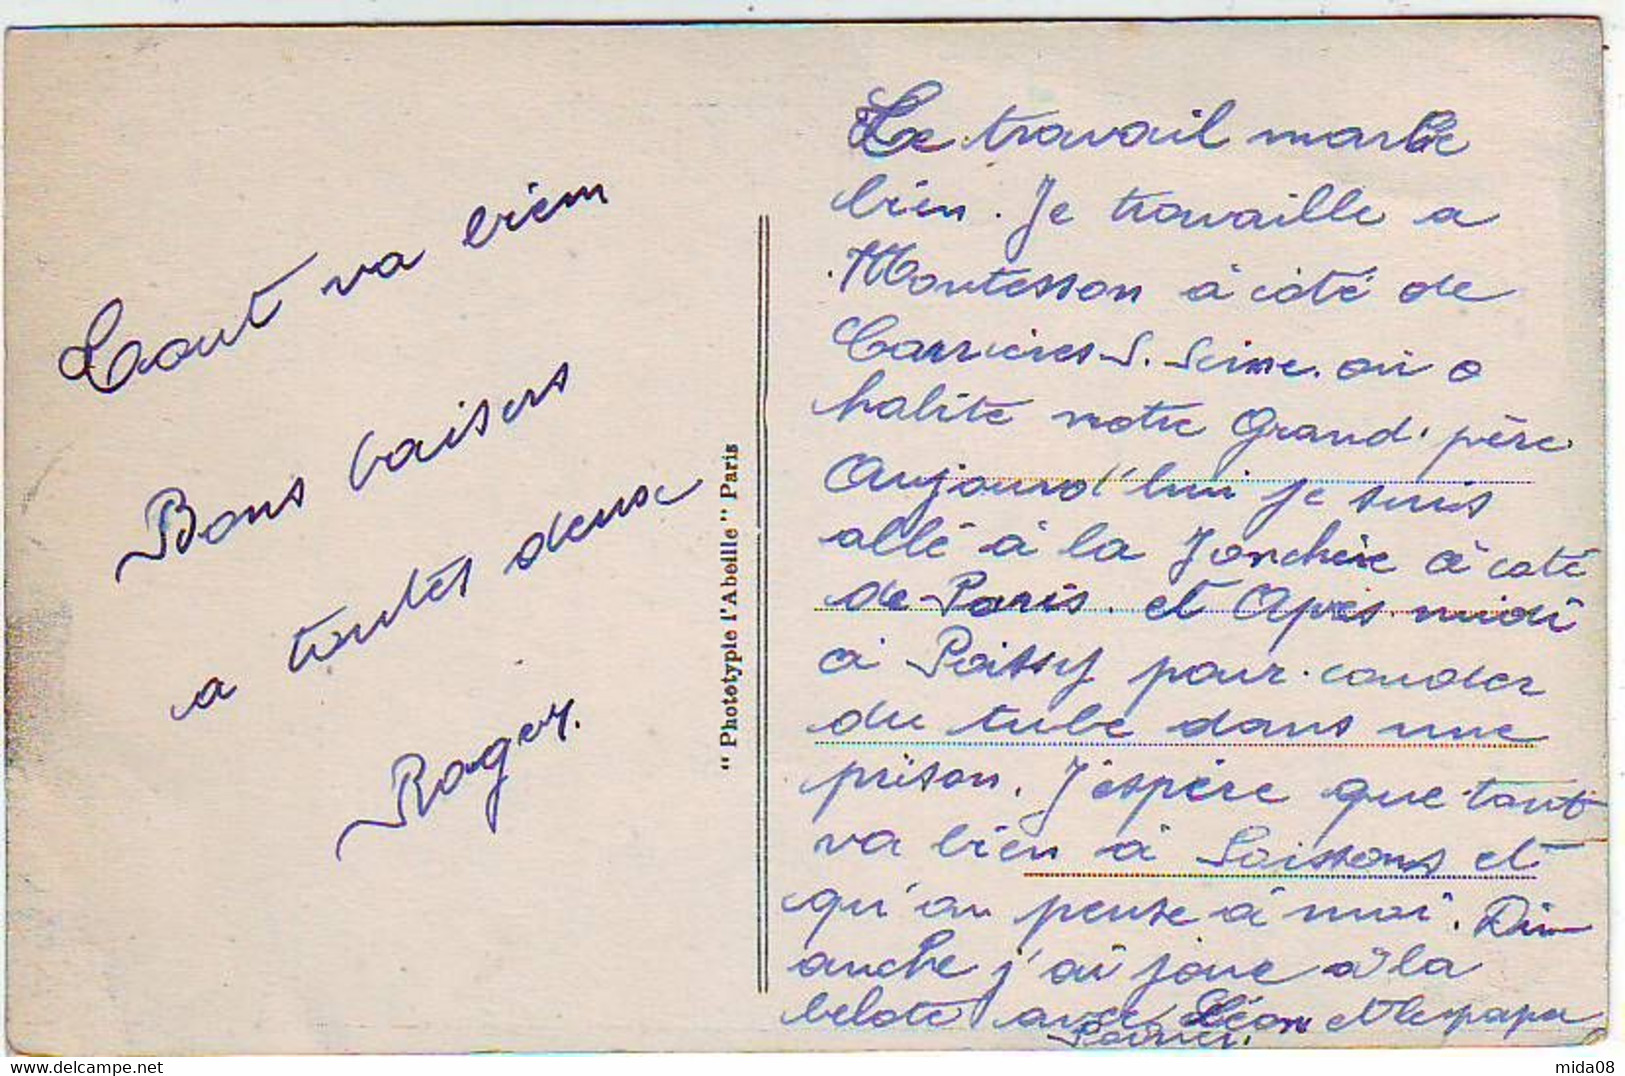 Tout va bien
Bons baisers
a toutes deux
Roger.
" Phototypie l'Abeille " Paris
Le travail marche
bien. Je travaille a
Montesson à côté de
Carrières S. Seine. où a
habité notre Grand-père
Aujourd'hui je suis
allé à la Jonchère à coté
de Paris. et Après-midi
à Poissy pour couder
du tube dans une
prison. J'espère que tout
va bien à Soissons et
qu'on pense à moi. Dim
anche j'ai joué à la
belote avec Léon et le papa
mida08